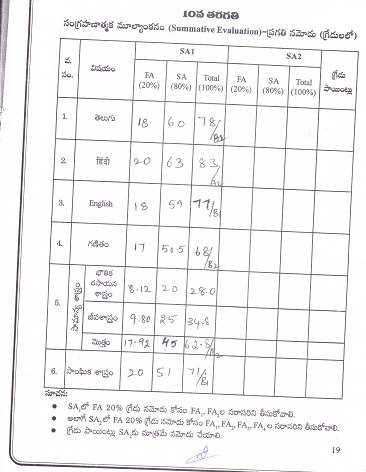 10వ తరగతి
సంగ్రహణాత్మక మూల్యాంకనం (Summative Evaluation)-ప్రగతి నమోదు (గ్రేడులలో)
SA1 SA2
వ. సం. విషయం FA (20%) SA (80%) Total (100%) FA (20%) SA (80%) Total (100%) గ్రేడు పాయింట్లు
1. తెలుగు 18 60 78/
2. हिंदी 20 63 83/A2
3. English 18 59 77/B1
4. గణితం 17 50.5 68/B2
5. సామాన్య శాస్త్రం
భౌతిక రసాయన శాస్త్రం 8.12 20 28.0
జీవశాస్త్రం 9.80 25 34.8
మొత్తం 17.92 45 62.8/B2
6. సాంఘిక శాస్త్రం 20 51 71/B1
సూచన:
• SA₁లో FA 20% గ్రేడు నమోదు కోసం FA₁, FA₂ల సరాసరిని తీసుకోవాలి.
• అలాగే SA₂లో FA 20% గ్రేడు నమోదు కోసం FA₁, FA₂, FA₃, FA₄ ల సరాసరిని తీసుకోవాలి.
• గ్రేడు పాయింట్లు SA₂కు మాత్రమే నమోదు చేయాలి.
19